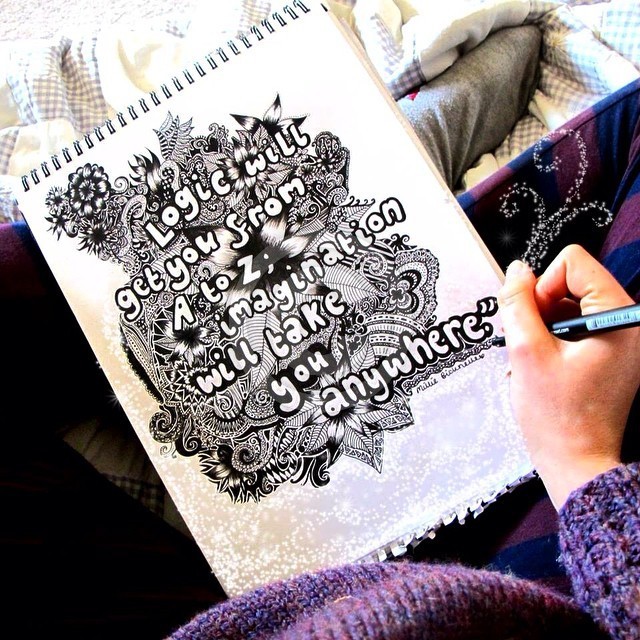 Logic will
get you from
A to Z;
imagination
will take
you
anywhere"